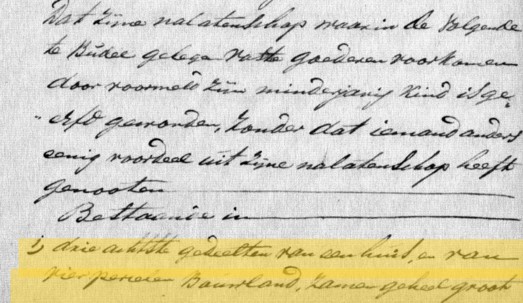 Dat zijne nalatenschap waarin de volgende
te Budel gelegen vaste goederen voorkomen
door voormeld zijn minderjarig kind is ge„
„erfd geworden, zonder dat iemand anders
eenig voordeel uit zijne nalatenschap heeft
genooten
Bestaande in
1) drie achtste gedeelten van een huis, en van
vier perceelen Bouwland, zamen geheel groot